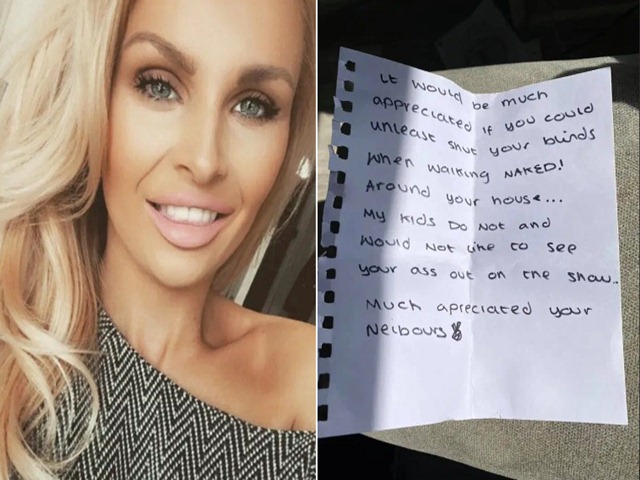 It would be much
appreciated if you could
unleast shut your blinds
when walking NAKED!
Around your house...
My kids Do Not and
would Not like to see
your ass out on the show..
Much apreciated your
Neibours